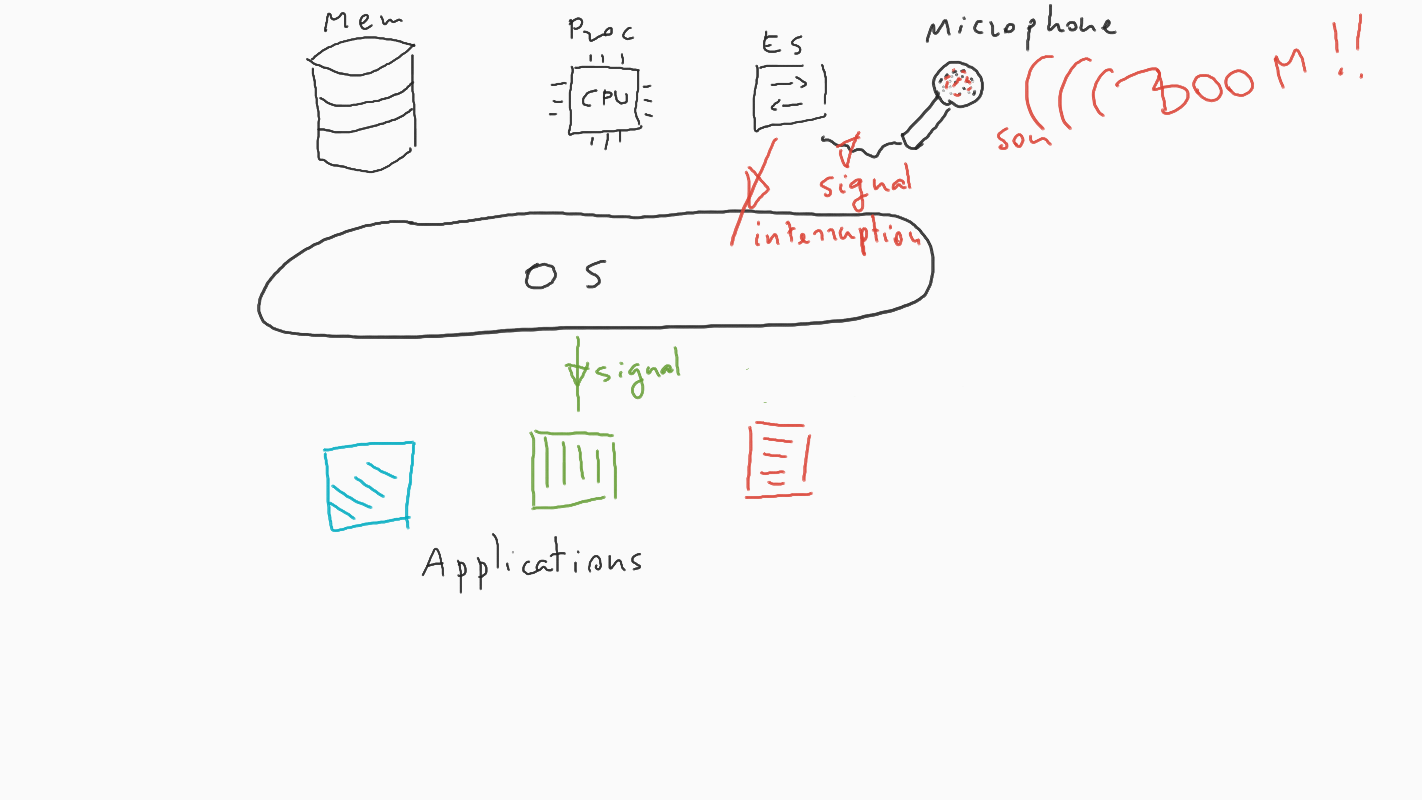 Mem
Proc
ES
Microphone
CPU
BOOM!!
son
signal
interruption
OS
signal
Applications